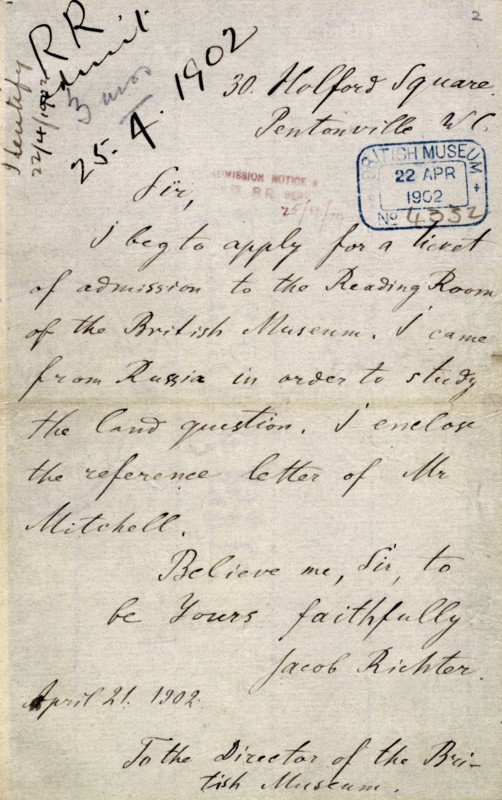 2
Identify
22/4/1902
RR
Admit
25. 4. 1902
30. Holford Square.
Pentonville W.C.
BRITISH MUSEUM
22 APR
1902
No 4332
ADMISSION NOTICE &
Sir,
I beg to apply for a ticket
of admission to the Reading Room
of the British Museum. I came
from Russia in order to study
the land question. I enclose
the reference letter of Mr
Mitchell.
Believe me, Sir, to
be Yours faithfully
Jacob Richter.
April 21. 1902.
To the Director of the Bri-
tish Museum.